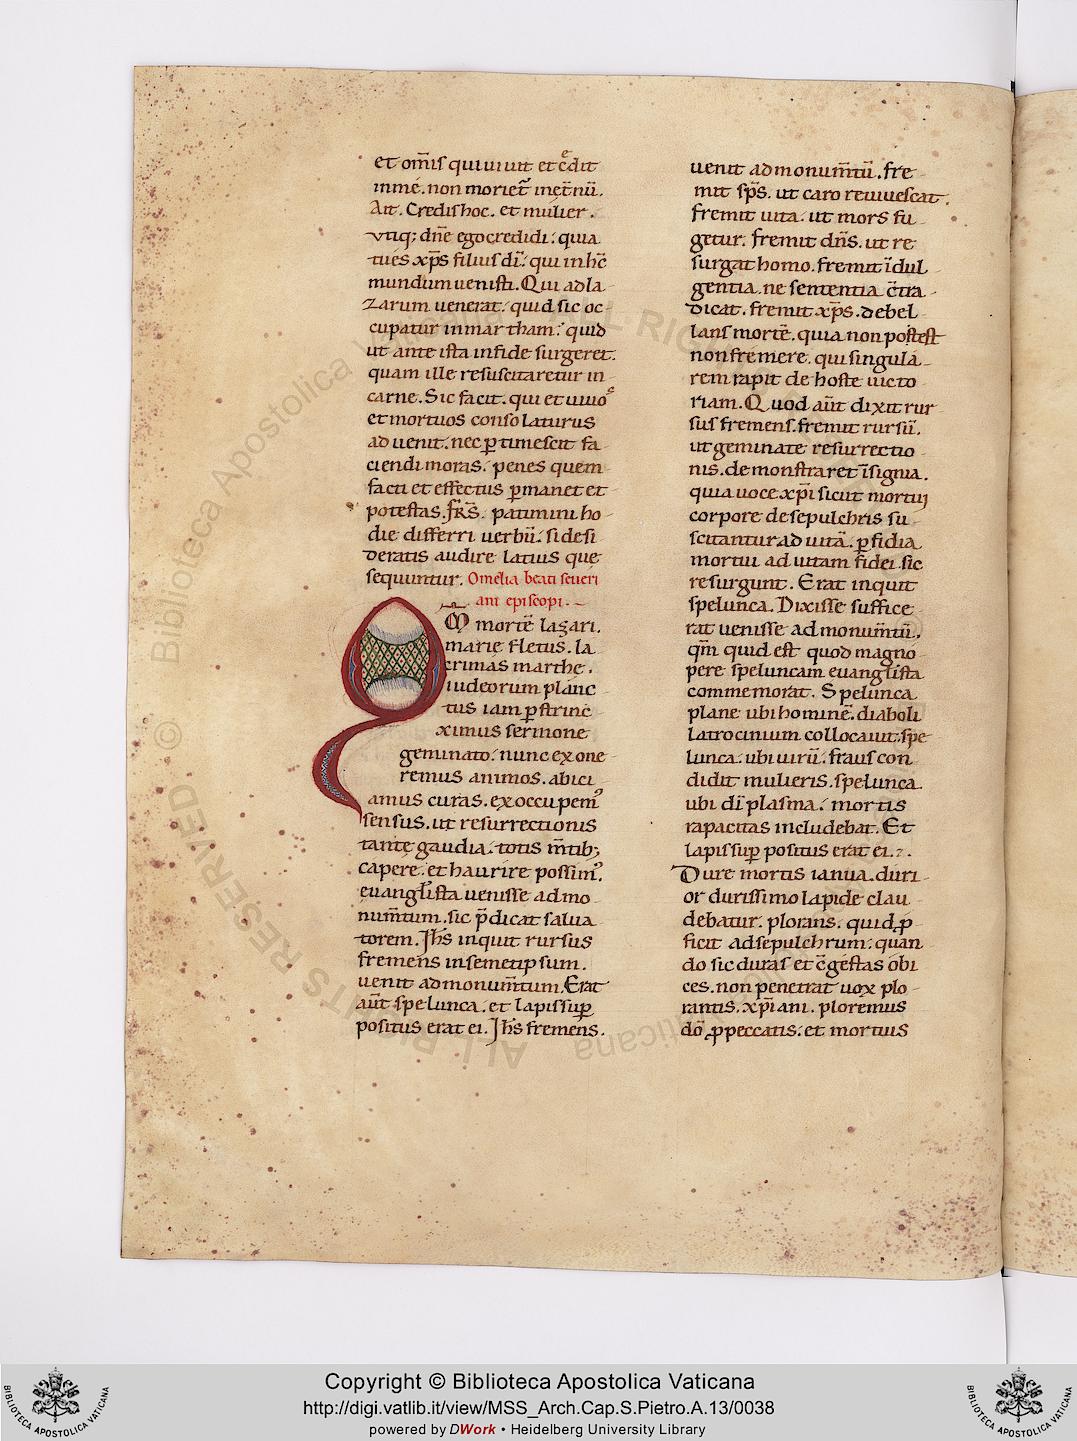 et om̅is qui uiuit et c̅edit
in me. non moriet᷑ inet̅nu̅.
Ait. Credis hoc. et mulier.
vtiq; dn̅e ego credidi. quia
tu es xp̅s filius di̅. qui in hc̅
mundum uenisti. Qui ad la
zarum uenerat. quid sic oc
cupatur in martham. quid
ut ante ista in fide surgeret.
quam ille resuscitaretur in
carne. Sic facit. qui et uiuos
et mortuos consolaturus
aduenit. nec ꝑtimescit fa
ciendi moras. penes quem
facti et effectus ꝑmanet et
potestas. fr̅s. patimini ho
die differri uerbu̅. si desi
deratis audire latius que
sequuntur. Omelia beati seueri
ani episcopi.
Q M morte̅ lazari.
marie fletus. la
crimas marthe.
iudeorum planc
tus iam ꝑstrinc
ximus sermone
geminato. nunc exone
remus animos. abici
amus curas. exoccupem᷒
sensus. ut resurrectionis
tantę gaudia. totis m̅tib;
capere. et haurire possim᷒.
euanglista uenisse ad mo
num̅tum. sic p̅dicat salua
torem. Jh̅s inquit rursus
fremens in semetipsum.
uenit ad monum̅tum. Erat
aut̅ spelunca. et lapis suꝑ
positus erat ei. Jh̅s fremens.
uenit ad monum̅tu̅. fre
mit sp̅s. ut caro reuiuescat.
fremit uita. ut mors fu
getur. fremit dn̅s. ut re
surgat homo. fremit i̅dul
gentia. ne sententia c̅tra
dicat. fremit xp̅s. debel
lans morte̅. quia non potest
non fremere. qui singula
rem rapit de hoste uicto
riam. Quod aut̅ dixit rur
sus fremens. fremit rursu̅.
ut geminate resurrectio
nis. demonstraret i̅signia.
quia uoce xp̅i sicut mortui
corpore de sepulchris su
scitantur ad uita̅. ꝑfidia
mortui ad uitam fidei sic
resurgunt. Erat inquit
spelunca. Dixisse suffice
rat uenisse ad monum̅tu̅.
qm̅ quid est quod magno
pere speluncam euanglista
commemorat. Spelunca
plane ubi homine̅. diaboli
latrocinium collocauit. spe
lunca. ubi uiru̅. fraus con
didit mulieris. spelunca.
ubi di̅ plasma. mortis
rapacitas includebat. Et
lapis suꝑpositus erat ei.
Dure mortis ianua. duri
or durissimo lapide clau
debatur. plorans. quid ꝓ
ficit ad sepulchrum. quan
do sic duras et c̅gestas obi
ces. non penetrat uox plo
rantis. xp̅iani. ploremus
do̅ ꝓ peccatis. et mortuis
Copyright © Biblioteca Apostolica Vaticana
http://digi.vatlib.it/view/MSS_Arch.Cap.S.Pietro.A.13/0038
powered by DWork • Heidelberg University Library
BIBLIOTECA APOSTOLICA VATICANA
BIBLIOTECA APOSTOLICA VATICANA
© Biblioteca Apostolica Vaticana ALL RIGHTS RESERVED